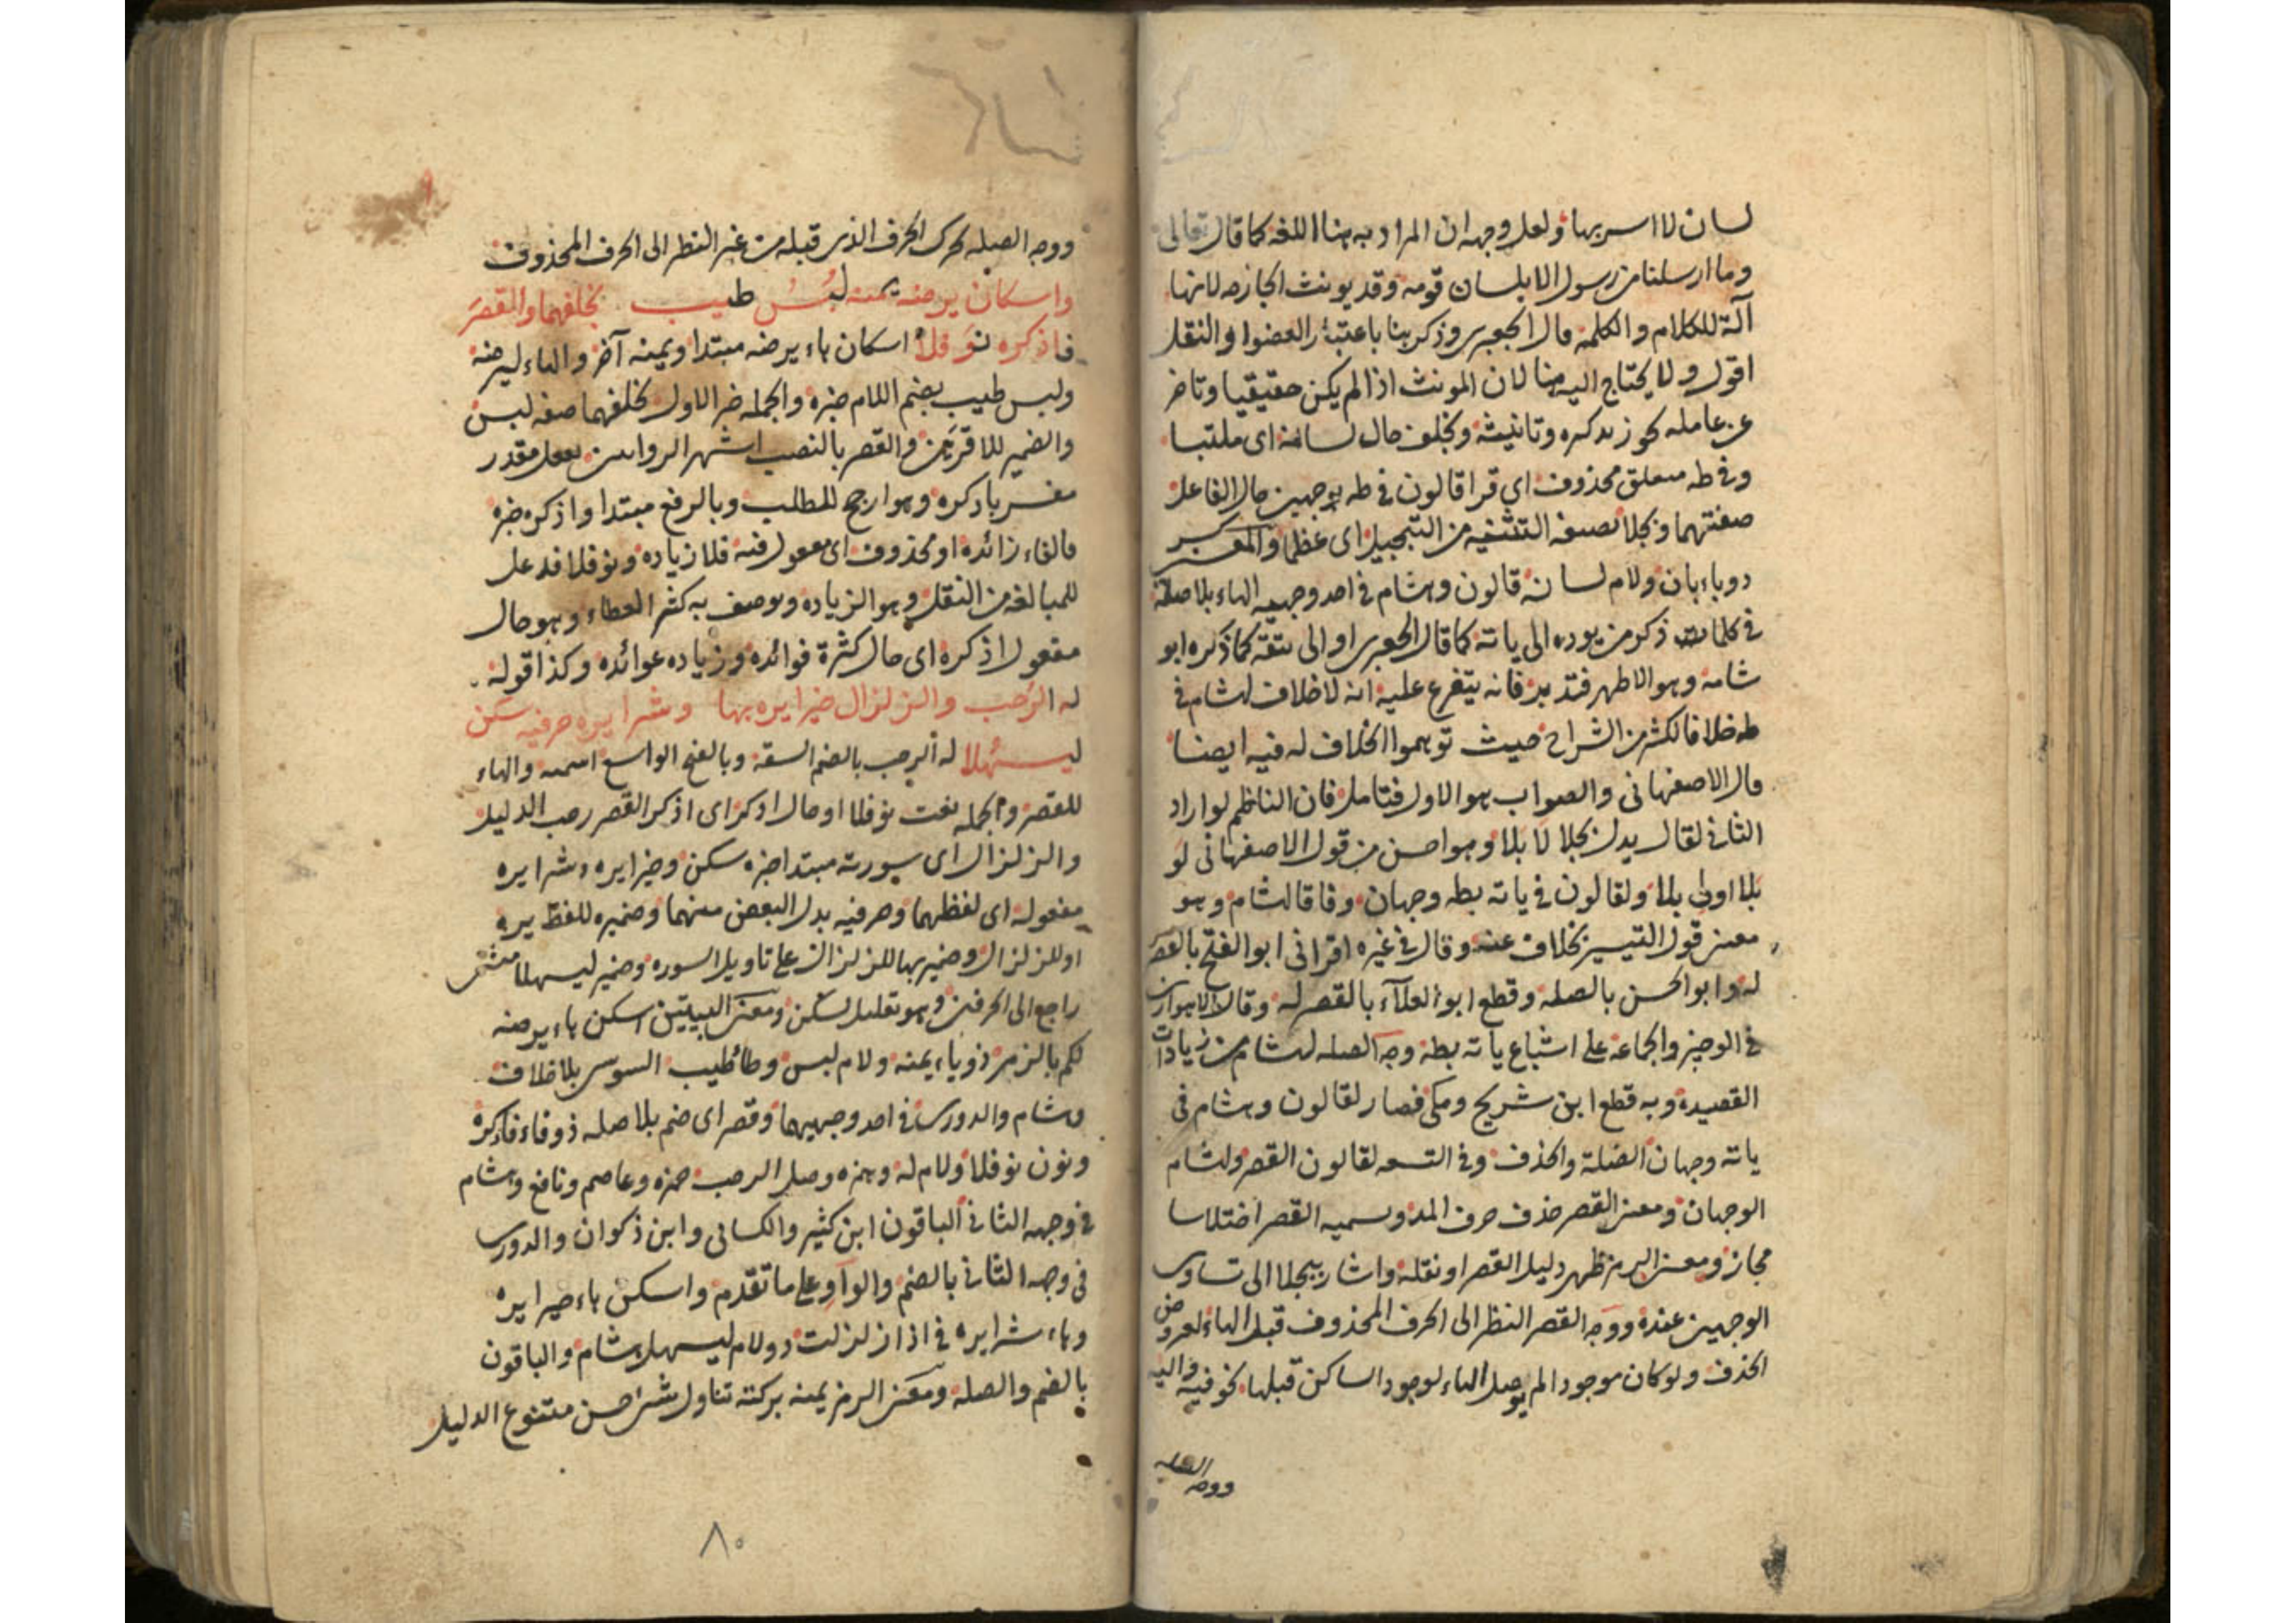 لسان لا اسر بها ولعل وجهه ان المراد به هنا اللغه كما قال تعالى
وما ارسلنا من رسول الا بلسان قومه وقد يونث الجازمه لانها
آلة للكلام والكلمة قال الجعبرى وذكر هنا باعتبار العضو او النقل
اقول ولا يحتاج اليه هنا لان المونث اذا لم يكن حقيقيا وتاخر
عن عامله يجوز تذكيره وتانيثه وبخلف حال لسانه اى ملتبسا
وفى طه متعلق محذوف اى قرا قالون فى طه بوجهين حال الفاعل
صفتهما وبجلا بصيغه التثنيه من التبجيل اى عظما والمعنى كسر
ذو باء بان ولام لسانه قالون وهشام فى احد وجهيه الهاء بلا صلة
فى كلمات ذكر من يوده الى ياته كما قال الجعبرى او الى يتقه كما ذكره ابو
شامة وهو الاظهر فتدبر فانه يتفرع عليه انه لا خلاف لهشام فى
طه خلافا لكثير من الشراح حيث توهموا الخلاف له فيه ايضا
قال الاصفهانى والصواب هو الاول فتامل فان الناظم لو اراد
الثانى لقال بدل بجلا لا بلا وهو احسن من قول الاصفهانى لو
بلا اولى بلا ولقالون فى ياته بطه وجهان وفاقا لهشام وهو
معنى قول التيسير بخلاف عنه وقال فى غيره اقرانى ابو الفتح بالقصر
له وابو الحسن بالصله وقطع ابو العلآء بالقصر له وقال الاهوازى
فى الوجيز والجماعة على اشباع ياته بطه وجه الصله لهشام من زيادات
القصيده وبه قطع ابن شريح ومكى فصار لقالون وهشام فى
ياته وجهان الصلة والحذف وفى التسعه لقالون القصر ولهشام
الوجهان ومعنى القصر حذف حرف المد وتسميه القصر اختلاسا
مجاز ومعنى الرمز ظهر دليل القصر او نقله واشار ببجلا الى تساوى
الوجهين عنده ووجه القصر النظر الى الحرف المحذوف قبل الهاء لعروض
الحذف ولو كان موجودا لم يوصل الهاء لوجود الساكن قبلها نحو فيه واليه
ووجه الصله
ووجه الصله تحرك الحرف الذى قبله من غير النظر الى الحرف المحذوف
واسكان يرضه يمنه لبس طيب بخلفهما والقصر
فاذكره نوفلا اسكان هاء يرضه مبتدا ويمنه آخر والهاء ليرضه
ولبس طيب بضم اللام خبره والجمله خبر الاول بخلفهما صفه لبس
والضمير للاقربين والقصر بالنصب اشهر الروايتين بفعل مقدر
مفسر باذكره وهو ارجح للطلب وبالرفع مبتدا واذكره خبره
فالفاء زائده او محذوف اى معول فيه فلا زياده ونوفلا فوعل
للمبالغه من النفل وهو الزياده ويوصف به كثير العطاء وهو حال
مفعول اذكره اى حال كثرة فوائده وزياده عوائده وكذا قوله
له الرحب والزلزال خيرا يره بها وشرا يره حرفيه سكن
ليسهلا له الرحب بالضم السعة وبالفتح الواسع اسميه والهاء
للقصر والجمله نعت نوفلا او حال اذكر اى اذكر القصر رحب الدليل
والزلزال اى سورته مبتدا خبره سكن وخيرا يره وشرا يره
مفعوله اى لفظهما وحرفيه بدل البعض منهما وضميره للفظ يره
او للزلزال وضمير بها للزلزال على تاويل السوره وضمير ليسهلا مثنى
راجع الى الحرفين وهو تعليل لسكن ومعنى البيتين اسكن هاء يرضه
لكم بالزمر ذو ياء يمنه ولام لبس وطا طيب السوسى بلا خلاف
وهشام والدورى فى احد وجهيهما وقصر اى ضم بلا صله ذو فاء فاذكره
ونون نوفلا ولام له وهمزه وصل الرحب حمزه وعاصم ونافع وهشام
فى وجهه الثانى الباقون ابن كثير والكسائى وابن ذكوان والدورى
فى وجهه الثانى بالضم والواو على ما تقدم واسكن هاء خيرا يره
وهاء شرا يره فى اذا زلزلت ذو لام ليسهلا هشام والباقون
بالضم والصله ومعنى الرمز يمنه بركته تناول شئ حسن متنوع الدليل
٨٠